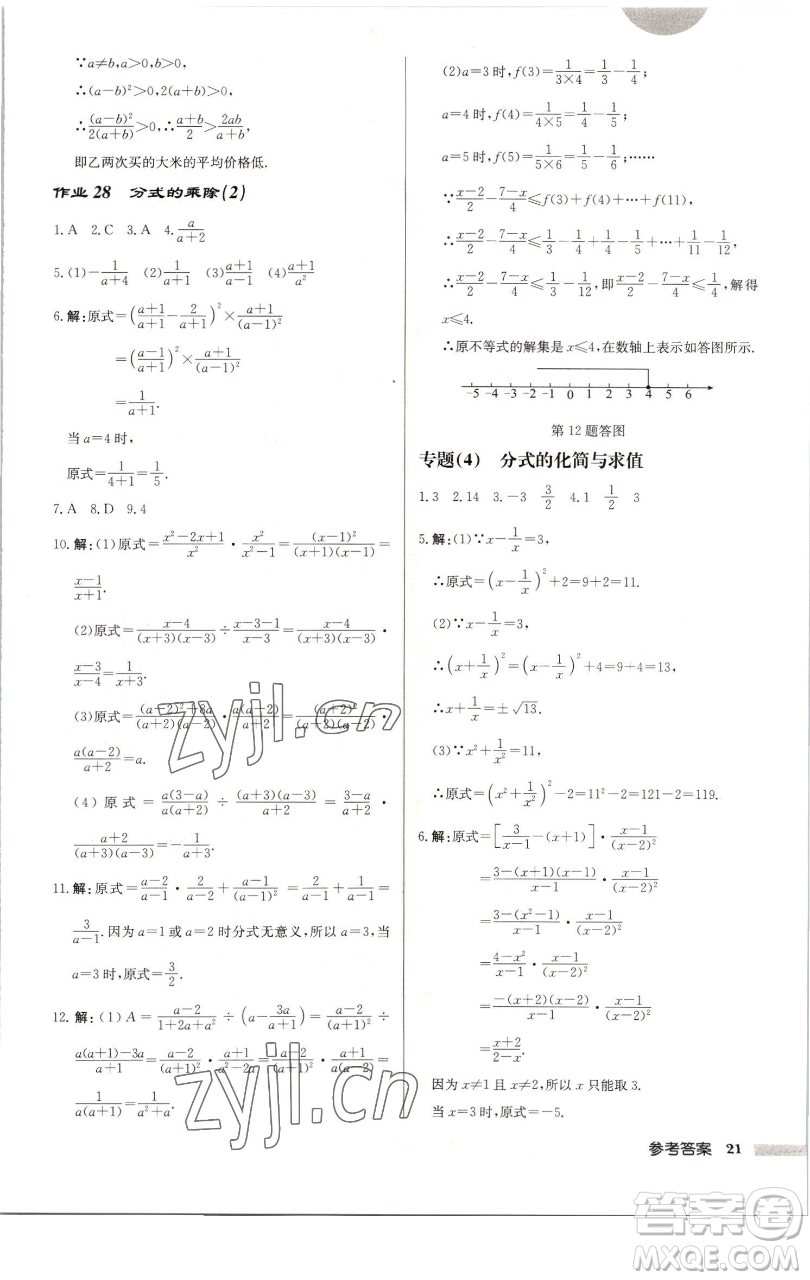 ∵a≠b,a>0,b>0,
∴(a−b)²>0,2(a+b)>0,
∴(a−b)²/2(a+b)>0,∴(a+b)/2>2ab/(a+b),
即乙两次买的大米的平均价格低.
作业 28 分式的乘除(2)
1.A 2.C 3.A 4.a/(a+2)
5.(1)−1/(a+4) (2)1/(a+1) (3)(a+1)/(a−1) (4)(a+1)/a²
6.解:原式=((a+1)/(a+1)−2/(a+1))²×(a+1)/(a−1)²
=((a−1)/(a+1))²×(a+1)/(a−1)²
=1/(a+1).
当a=4时,
原式=1/(4+1)=1/5.
7.A 8.D 9.4
10.解:(1)原式=(x²−2x+1)/x²·x²/(x²−1)=(x−1)²/(x+1)(x−1)=
(x−1)/(x+1).
(2)原式=(x−4)/(x+3)(x−3)÷(x−3−1)/(x−3)=(x−4)/(x+3)(x−3)·
(x−3)/(x−4)=1/(x+3).
(3)原式=((a−2)²+8a)/(a+2)(a−2)·a(a−2)/(a+2)=(a+2)²/(a+2)(a−2)·
a(a−2)/(a+2)=a.
(4)原式=a(3−a)/a(a+2)÷(a+3)(a−3)/(a+2)=(3−a)/(a+2)·
(a+2)/(a+3)(a−3)=−1/(a+3).
11.解:原式=(a−2)/(a−1)·2/(a−2)+(a−1)/(a−1)²=2/(a−1)+1/(a−1)=
3/(a−1).因为a=1或a=2时分式无意义,所以a=3,当
a=3时,原式=3/2.
12.解:(1)A=(a−2)/(1+2a+a²)÷(a−3a/(a+1))=(a−2)/(a+1)²÷
(a(a+1)−3a)/(a+1)=(a−2)/(a+1)²·(a+1)/(a²−2a)=(a−2)/(a+1)²·(a+1)/a(a−2)=
1/a(a+1)=1/(a²+a).
(2)a=3时,f(3)=1/(3×4)=1/3−1/4;
a=4时,f(4)=1/(4×5)=1/4−1/5;
a=5时,f(5)=1/(5×6)=1/5−1/6;
…
∵(x−2)/2−(7−x)/4≤f(3)+f(4)+…+f(11),
∴(x−2)/2−(7−x)/4≤1/3−1/4+1/4−1/5+…+1/11−1/12,
∴(x−2)/2−(7−x)/4≤1/3−1/12,即(x−2)/2−(7−x)/4≤1/4,解得
x≤4.
∴原不等式的解集是x≤4,在数轴上表示如答图所示.
−5 −4 −3 −2 −1 0 1 2 3 4 5 6
第12题答图
专题(4) 分式的化简与求值
1.3 2.14 3.−3 3/2 4.1 1/2 3
5.解:(1)∵x−1/x=3,
∴原式=(x−1/x)²+2=9+2=11.
(2)∵x−1/x=3,
∴(x+1/x)²=(x−1/x)²+4=9+4=13,
∴x+1/x=±√13.
(3)∵x²+1/x²=11,
∴原式=(x²+1/x²)²−2=11²−2=121−2=119.
6.解:原式=[3/(x−1)−(x+1)]·(x−1)/(x−2)²
=(3−(x+1)(x−1))/(x−1)·(x−1)/(x−2)²
=(3−(x²−1))/(x−1)·(x−1)/(x−2)²
=(4−x²)/(x−1)·(x−1)/(x−2)²
=−(x+2)(x−2)/(x−1)·(x−1)/(x−2)²
=(x+2)/(2−x).
因为x≠1且x≠2,所以x只能取3.
当x=3时,原式=−5.
参考答案 21
zyjl.cn
zyjl.cn
答案圈
MXQE.COM